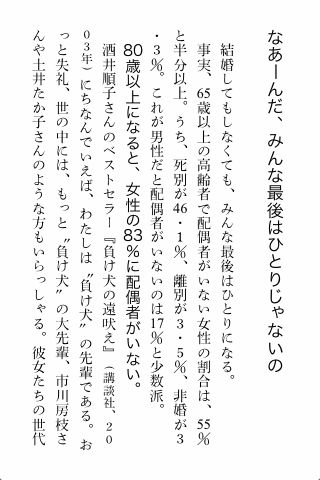 なあーんだ、みんな最後はひとりじゃないの
結婚してもしなくても、みんな最後はひとりになる。
事実、65歳以上の高齢者で配偶者がいない女性の割合は、55%
と半分以上。うち、死別が46・1%、離別が3・5%、非婚が3
・3%。これが男性だと配偶者がいないのは17%と少数派。
80歳以上になると、女性の83%に配偶者がいない。
酒井順子さんのベストセラー『負け犬の遠吠え』(講談社、20
03年)にちなんでいえば、わたしは〝負け犬〟の先輩である。お
っと失礼、世の中には、もっと〝負け犬〟の大先輩、市川房枝さ
んや土井たか子さんのような方もいらっしゃる。彼女たちの世代